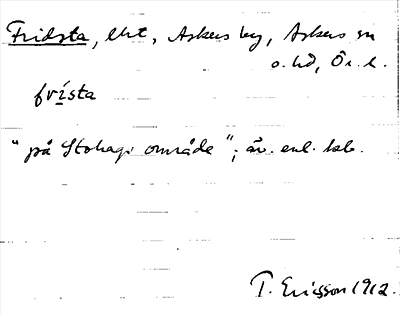 Fridsta, lht, Askers by, Askers sn
o. hd, Ör. l.
frísta
"på Stohags område"; äv. enl. kb.
T. Ericsson 1912.